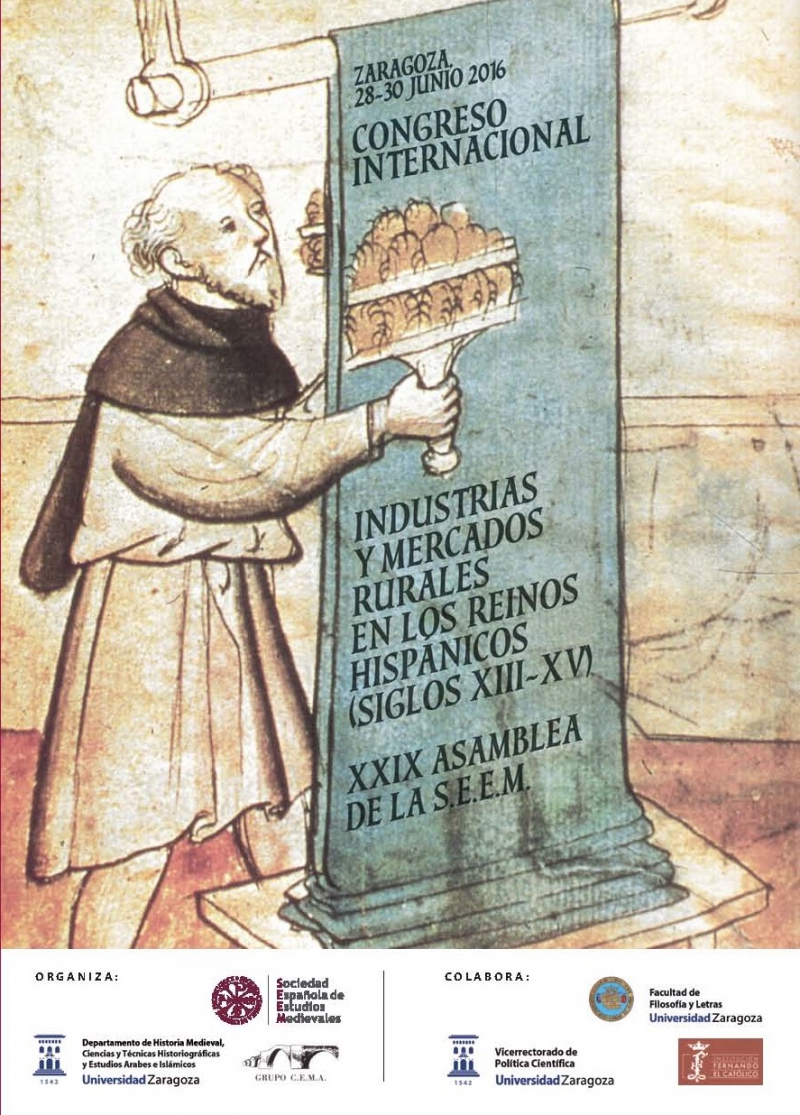 ZARAGOZA,
28-30 JUNIO 2016
CONGRESO
INTERNACIONAL
INDUSTRIAS
Y MERCADOS
RURALES
EN LOS REINOS
HISPÁNICOS
(SIGLOS XIII-XV)
XXIX ASAMBLEA
DE LA S.E.E.M.
ORGANIZA:
Sociedad
Española de
Estudios
Medievales
Departamento de Historia Medieval,
Ciencias y Técnicas Historiográficas
y Estudios Arabes e Islámicos
Universidad Zaragoza
1542
GRUPO C.E.M.A.
COLABORA:
Facultad de
Filosofía y Letras
Universidad Zaragoza
Vicerrectorado de
Política Científica
Universidad Zaragoza
1542
INSTITUCIÓN
FERNANDO
EL CATÓLICO